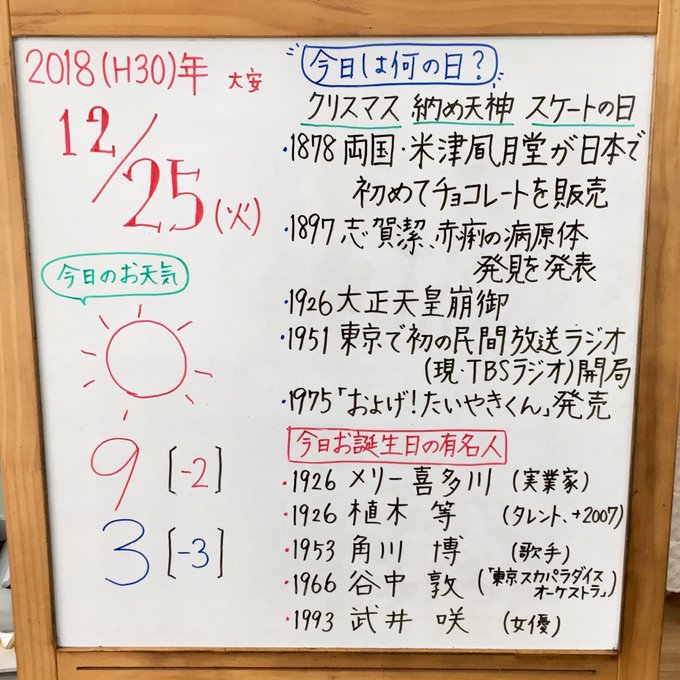 2018(H30)年 大安
12/25(火)
今日のお天気
9 [-2]
3 [-3]
今日は何の日?
クリスマス 納め天神 スケートの日
・1878 両国・米津凮月堂が日本で
初めてチョコレートを販売
・1897 志賀潔、赤痢の病原体
発見を発表
・1926 大正天皇崩御
・1951 東京で初の民間放送ラジオ
(現・TBSラジオ)開局
・1975「およげ!たいやきくん」発売
今日お誕生日の有名人
・1926 メリー喜多川 (実業家)
・1926 植木 等 (タレント、+2007)
・1953 角川 博 (歌手)
・1966 谷中 敦 (「東京スカパラダイス
オーケストラ」)
・1993 武井 咲 (女優)